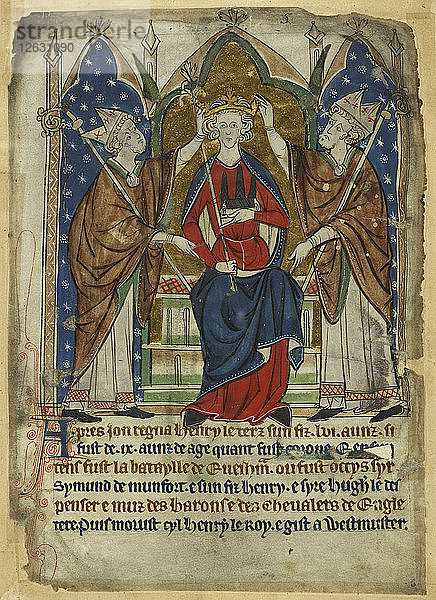 Apres Jon regna Henry le terz sun fiz. loi. aunz. si
fust de .ix. aunz de age quant fust corone. E en sun
tens fust la bataylle de Euesham. ou fust occys syr
Symund de munfort. e sun fiz Henry. e syre Hugh le des
penser e muz des barons e des chevalers de Engle
tere. Puis morust cyl Henry le Roy. e gist a Westmuster.
stock.adobe.com